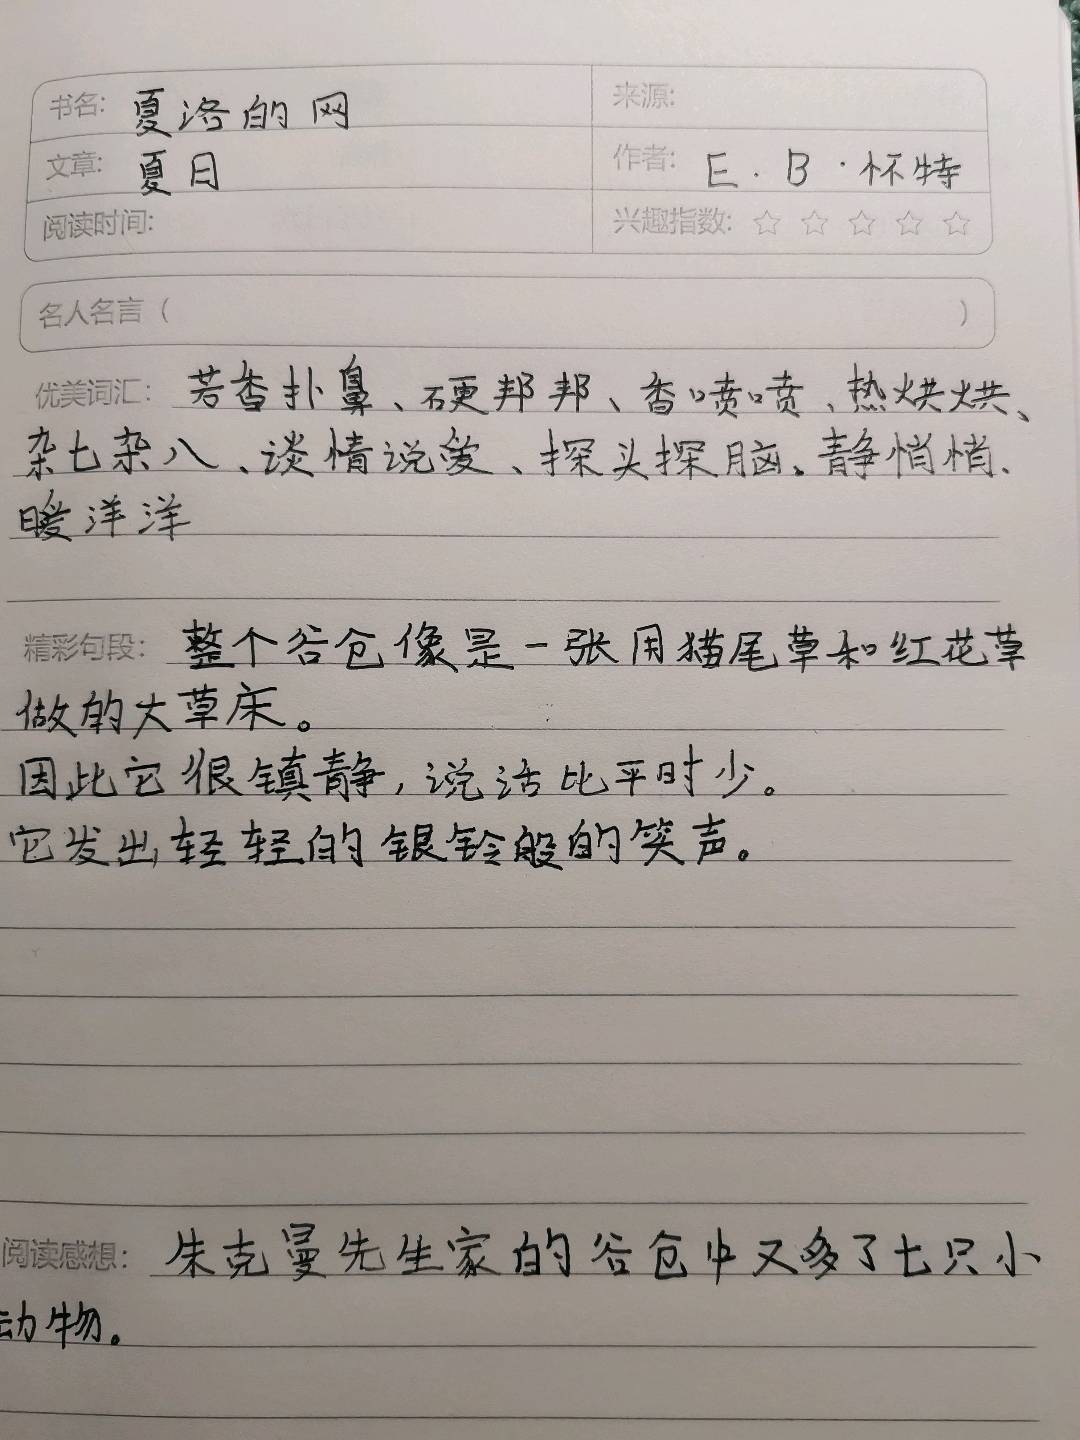 书名: 夏洛的网 来源:
文章: 夏日 作者: E.B.怀特
阅读时间: 兴趣指数: ☆ ☆ ☆ ☆ ☆
名人名言（ ）
优美词汇: 芳香扑鼻、硬邦邦、香喷喷、热烘烘、
杂七杂八、谈情说爱、探头探脑、静悄悄、
暖洋洋
精彩句段: 整个谷仓像是一张用猫尾草和红花草
做的大草床。
因此它很镇静,说话比平时少。
它发出轻轻的银铃般的笑声。
阅读感想: 朱克曼先生家的谷仓中又多了七只小
动物。